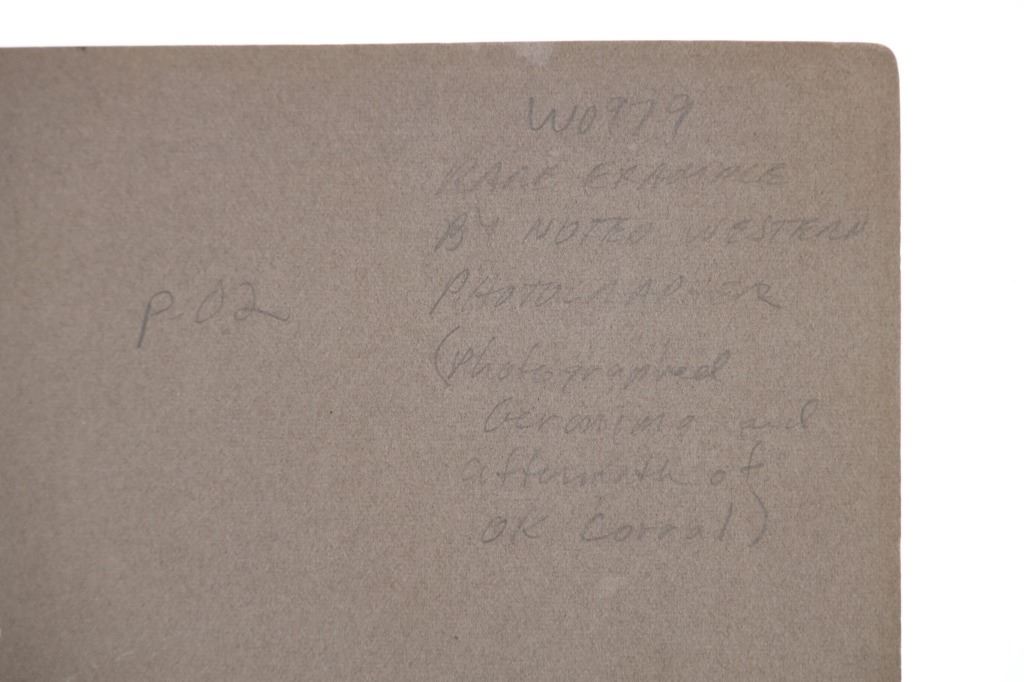 W0979
RARE EXAMPLE
BY NOTED WESTERN
PHOTOGRAPHER
p.02
(Photographed
Geronimo and
aftermath of
OK Corral)